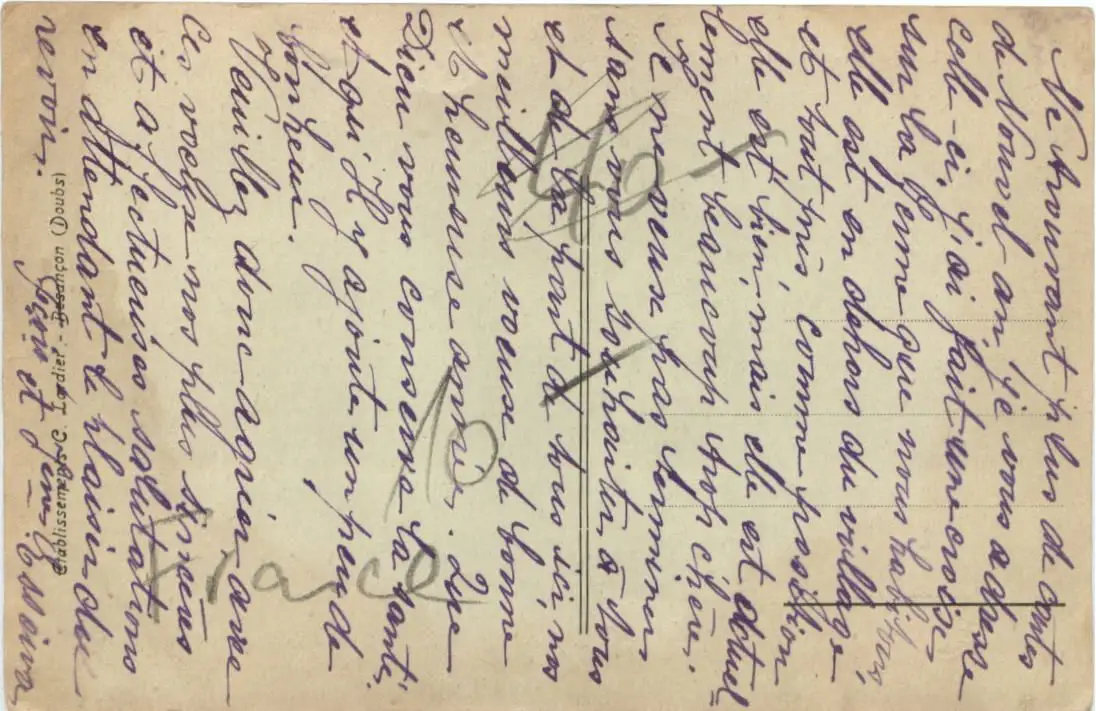 Ne trouvant plus de cartes
de Nouvel an, je vous adresse
celle-ci. J'ai fait une croix
sur la ferme que nous habitons,
elle est en dehors du village
et tout près, comme position
elle est bien, mais elle est actuel-
lement beaucoup trop chère.
Je ne veux pas terminer
sans vous souhaiter à tous
et de la part de tous ici, nos
meilleurs voeux de bonne
et heureuse année. Que
Dieu vous conserve la santé,
et qu'il y ajoute un peu de
bonheur.
Veuillez donc agréer avec
ces voeux nos plus sincères
et affectueuses salutations
en attendant le plaisir de
revoir.
Etablissements C. Lardier - Besançon (Doubs)
40-
10
France